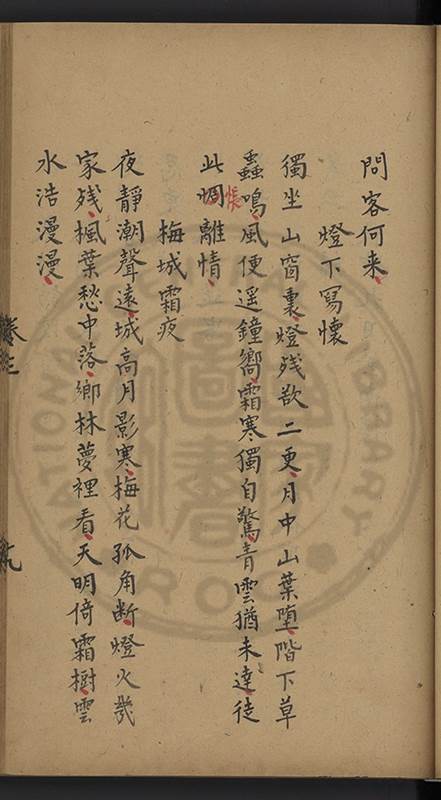 問客何来
燈下冩懷
獨坐山窗裏燈残欲二更月中山葉堕階下草
蟲鳴風便遥鐘嚮霜寒獨自驚青雲猶未達徒
此惆離情
悵
梅城霜夜
夜靜潮聲遠城高月影寒梅花孤角断燈火幾
家残楓葉愁中落鄉林夢裡看天明倚霜樹雲
水浩漫漫
卷之
九